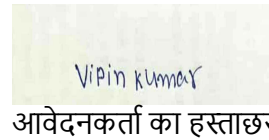 Vipin kumar
आवेदनकर्ता का हस्ताछर